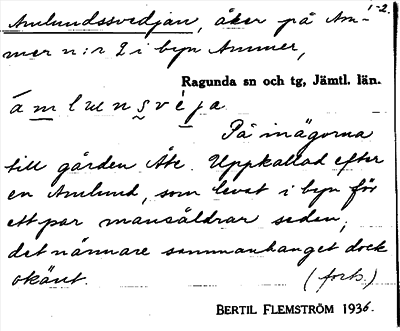 1-2.
Amlundssvedjan, åker på Am-
mer n:r 2 i byn Ammer,
Ragunda sn och tg, Jämtl. län.
På inägorna
till gården Åke. Uppkallad efter
en Amlund, som levat i byn för
ett par mansåldrar sedan;
det närmare sammanhanget dock
okänt. (forts.)
BERTIL FLEMSTRÖM 1936.